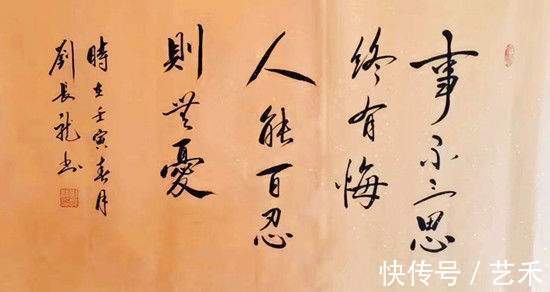 事不三思
終有悔
人能百忍
則無憂
時在壬寅春月
劉長龍书
快传号/艺禾